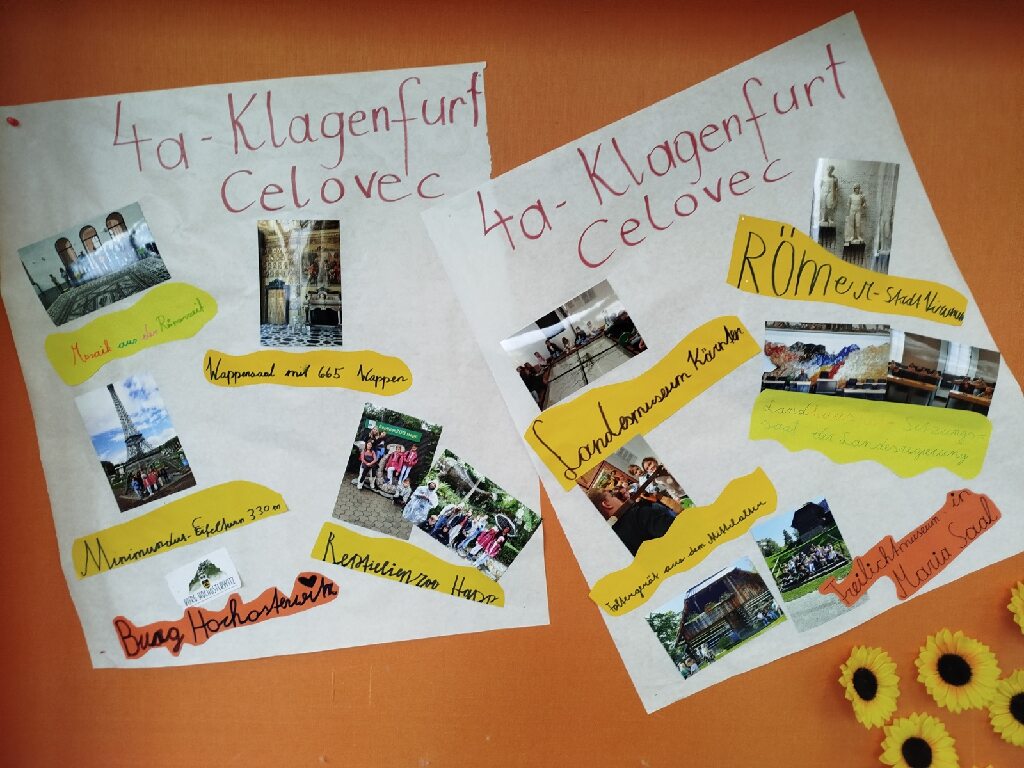 4a-Klagenfurt
Celovec
Mosaik aus der Römerzeit
Wappensaal mit 665 Wappen
Minimundus-Eifelturm 330 m
Reptilienzoo Happ
BURG HOCHOSTERWITZ
Burg Hochosterwitz
4a-Klagenfurt
Celovec
RÖMER-Stadt Virunum
Landesmuseum Kärnten
Landhaus - Sitzungs-
saal der Landesregierung
Foltergerät aus dem Mittelalter
Freilichtmuseum in
Maria Saal